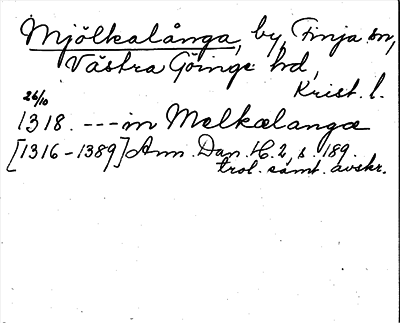 Mjölkalånga, by, Finja sn,
Västra Göinge hd,
Krist. l.
26/10
1318. --- in Melkælangæ
[1316-1389] Ann. Dan. H. 2, s. 189.
trol. samt. avskr.